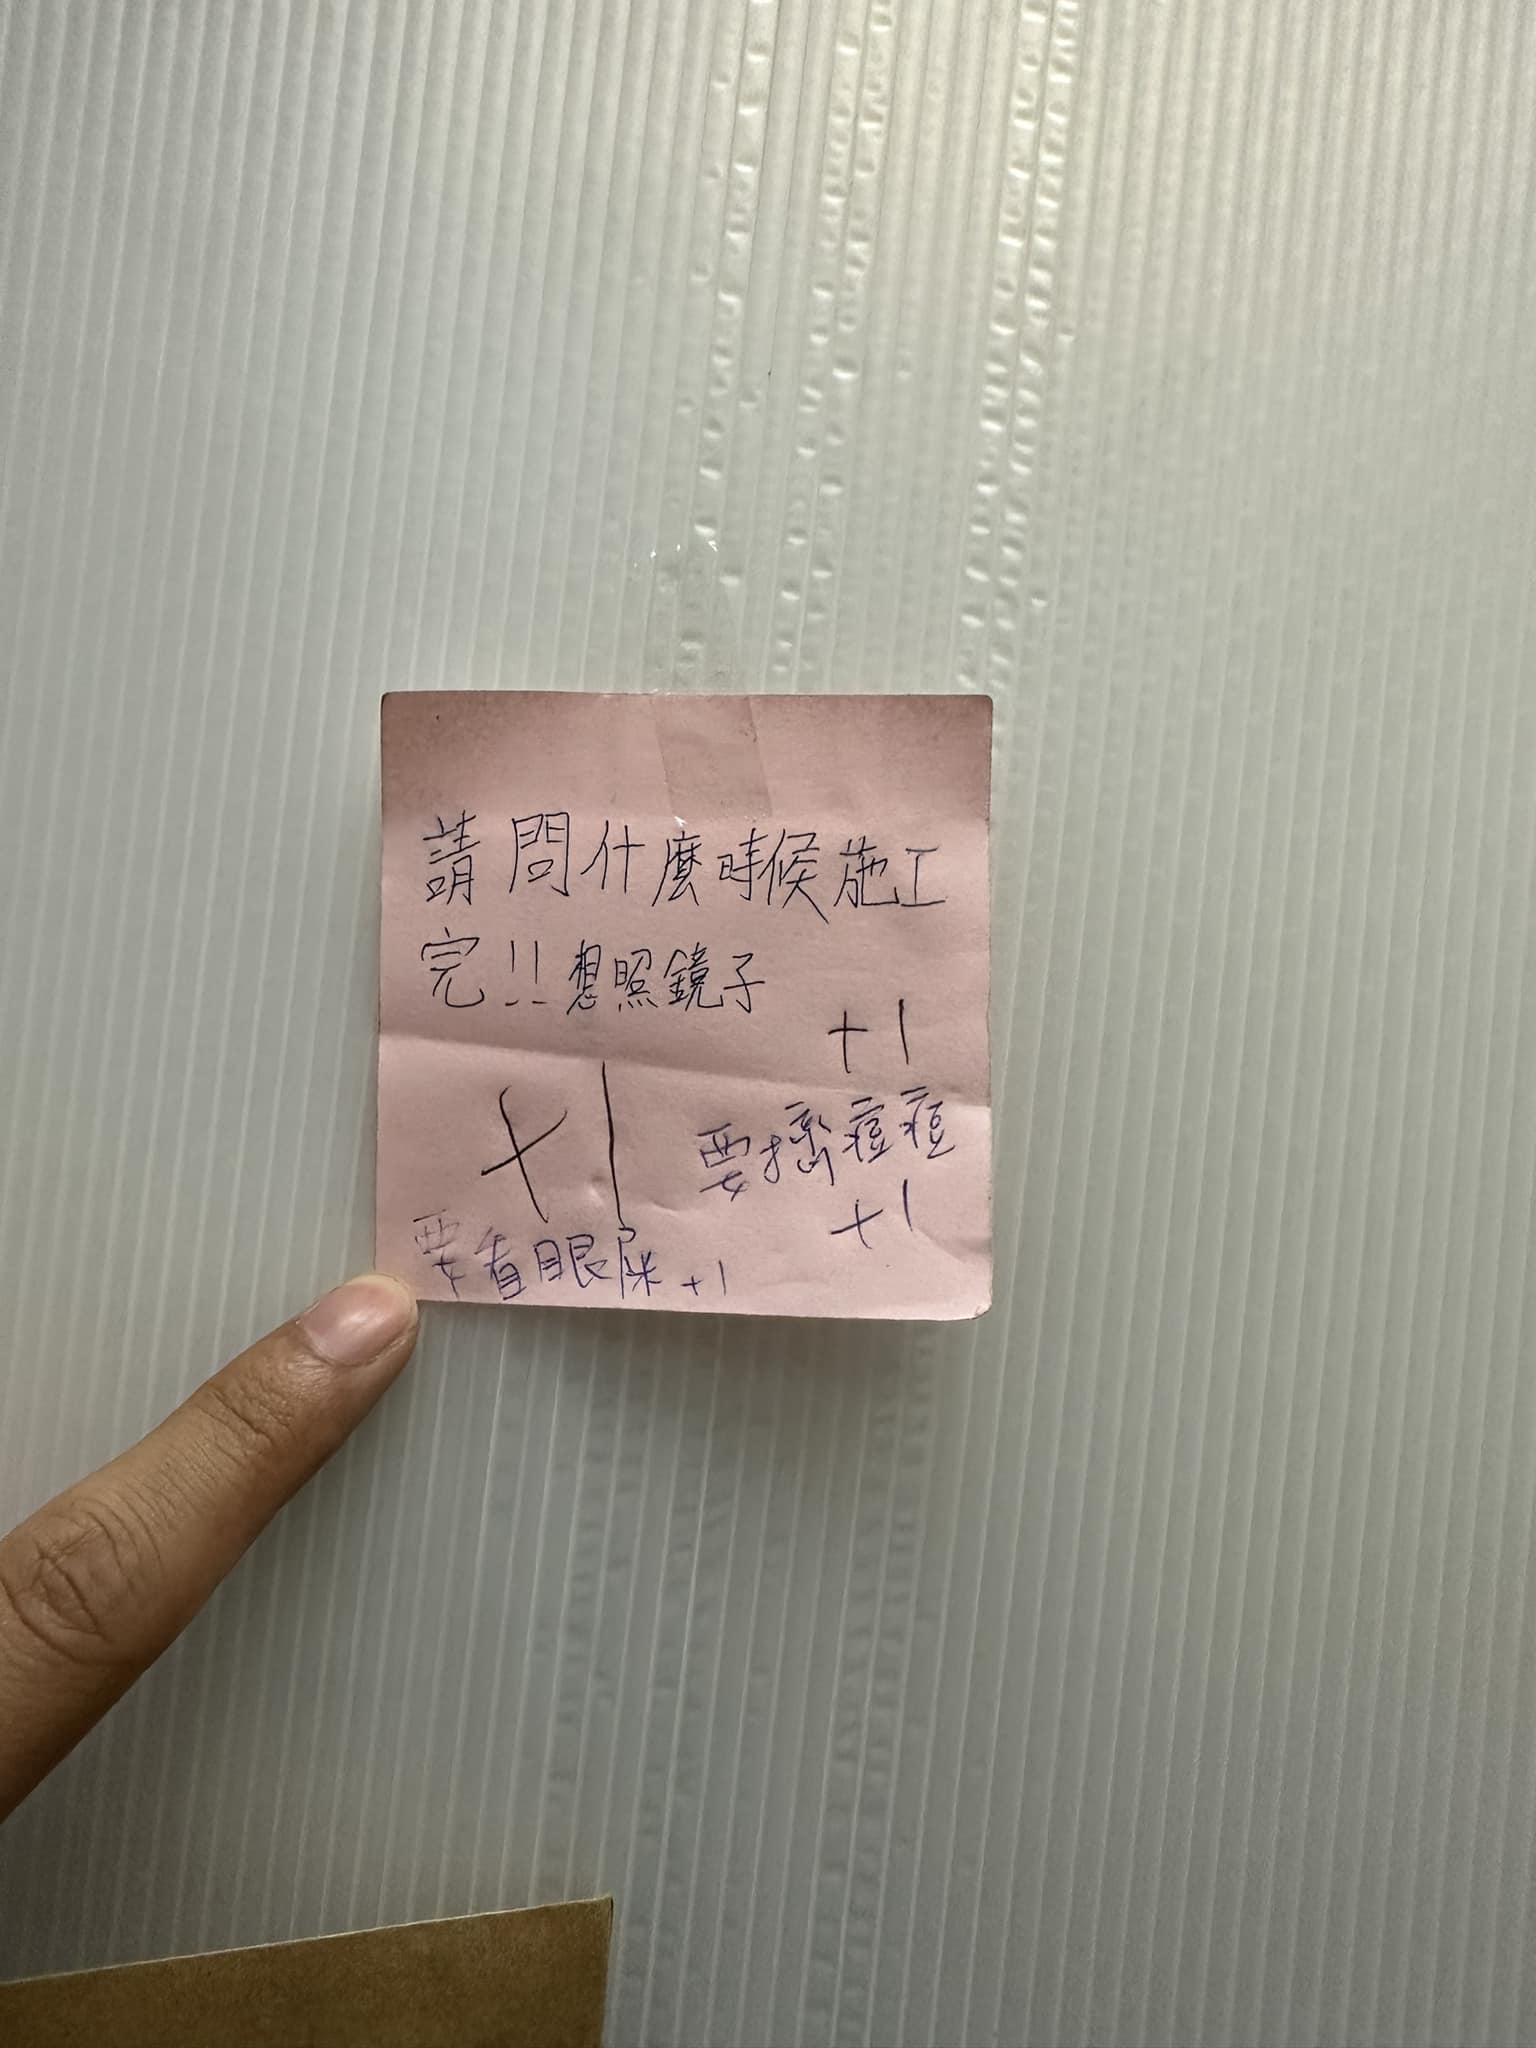 請問什麼時候施工
完!!想照鏡子
+1
+1
要擠痘痘
+1
要看眼屎+1